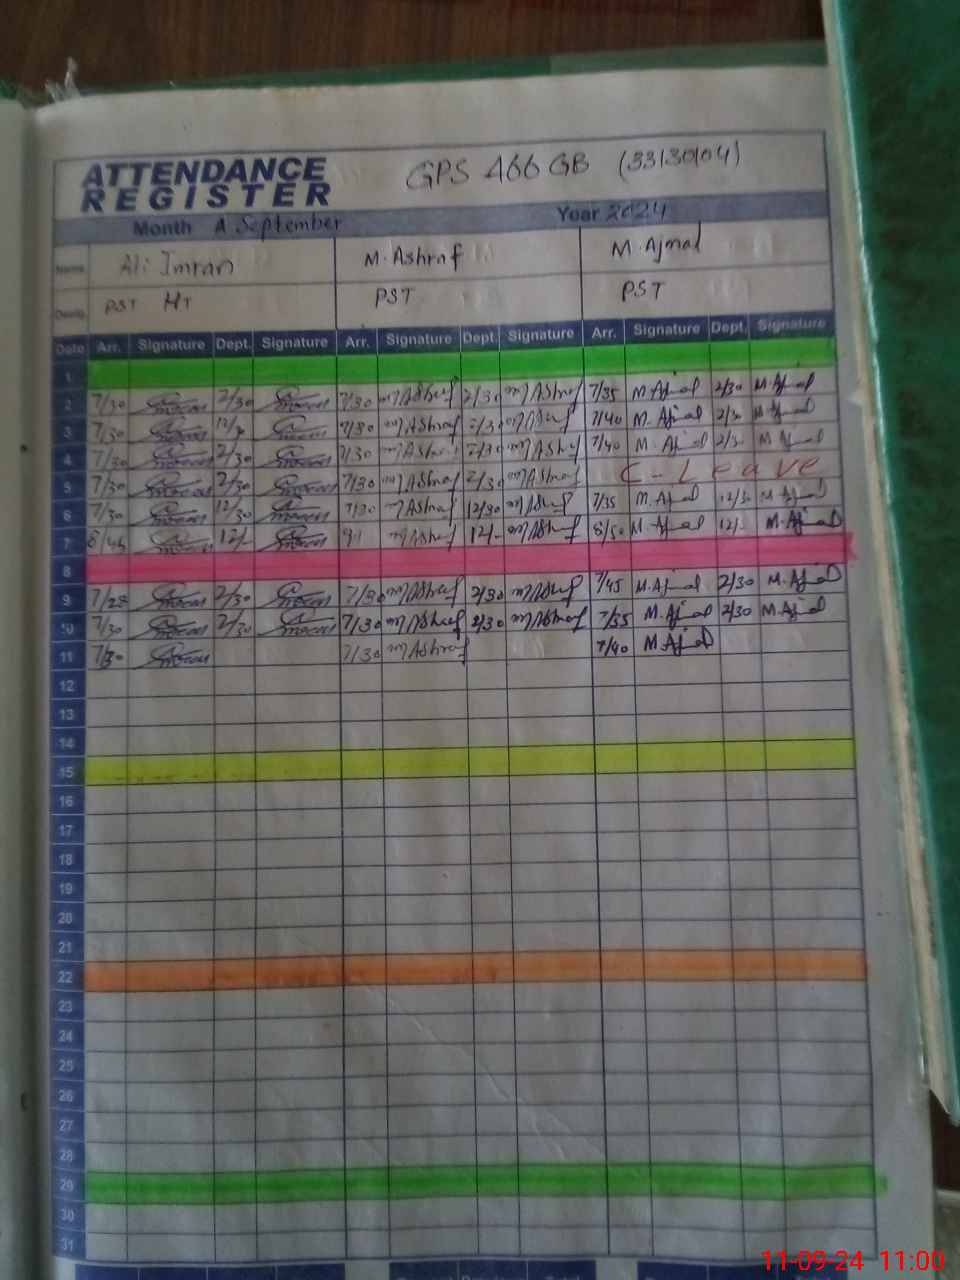 ATTENDANCE
REGISTER
GPS 466 GB (33130104)
Month A September Year 2024
Name Ali Imran M. Ashraf M. Ajmal
Desig. PST HT PST PST
Date Arr. Signature Dept. Signature Arr. Signature Dept. Signature Arr. Signature Dept. Signature
1
2 7/30 2/30 7/30 m Ashraf 2/30 m Ashraf 7/35 M. Ajmal 2/30 M. Ajmal
3 7/30 7/30 m Ashraf 2/30 m Ashraf 7/40 M. Ajmal 2/30 M. Ajmal
4 7/30 2/30 7/30 m Ashraf 2/30 m Ashraf 7/40 M. Ajmal 2/30 M Ajmal
5 7/30 2/30 7/30 m Ashraf 2/30 m Ashraf C - Leave
6 7/30 12/30 7/30 m Ashraf 12/30 m Ashraf 7/35 M. Ajmal 12/30 M. Ajmal
7 8/45 12/- m Ashraf 12/- m Ashraf 8/50 M. Ajmal 12/- M. Ajmal
8
9 7/28 2/30 7/30 m Ashraf 2/30 m Ashraf 7/45 M. Ajmal 2/30 M. Ajmal
10 7/30 2/30 7/30 m Ashraf 2/30 m Ashraf 7/35 M. Ajmal 2/30 M. Ajmal
11 7/30 7/30 m Ashraf 7/40 M. Ajmal
12
13
14
15
16
17
18
19
20
21
22
23
24
25
26
27
28
29
30
31
11-09-24 11:00